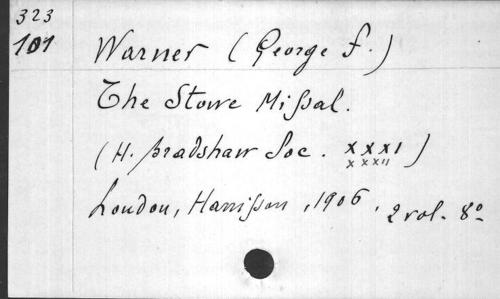 323
101
Warner (George F.)
The Stowe Missal.
(H. Bradshaw Soc. XXXI)
XXXII
London, Harrisson, 1906, 2 vol. 8º